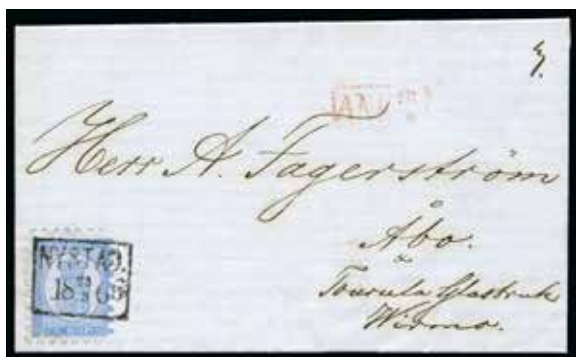 3.
ANK
Herr A. Fagerström
Åbo.
Tourula Glasbruk
Wirmo.
NYSTAD.
18 68